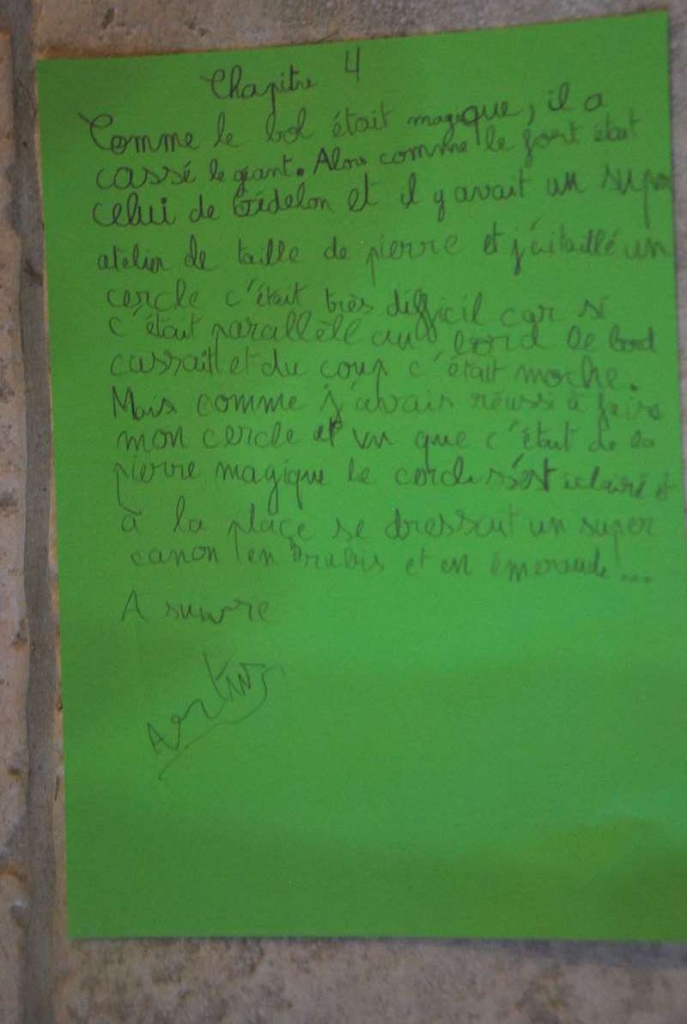 Chapitre 4
Comme le bol était magique, il a
cassé le géant. Alors comme le fort était
celui de Guédelon et il y avait un super
atelier de taille de pierre et j'ai taillé un
cercle c'était très difficil car si
c'était parallèle au bord le bord
cassait et du coup c'était moche.
Mais comme j'avais réussi à faire
mon cercle et vu que c'était de la
pierre magique le cercle s'est éclairé et
à la place se dressait un super
canon en rubis et en émeraude...
A suivre